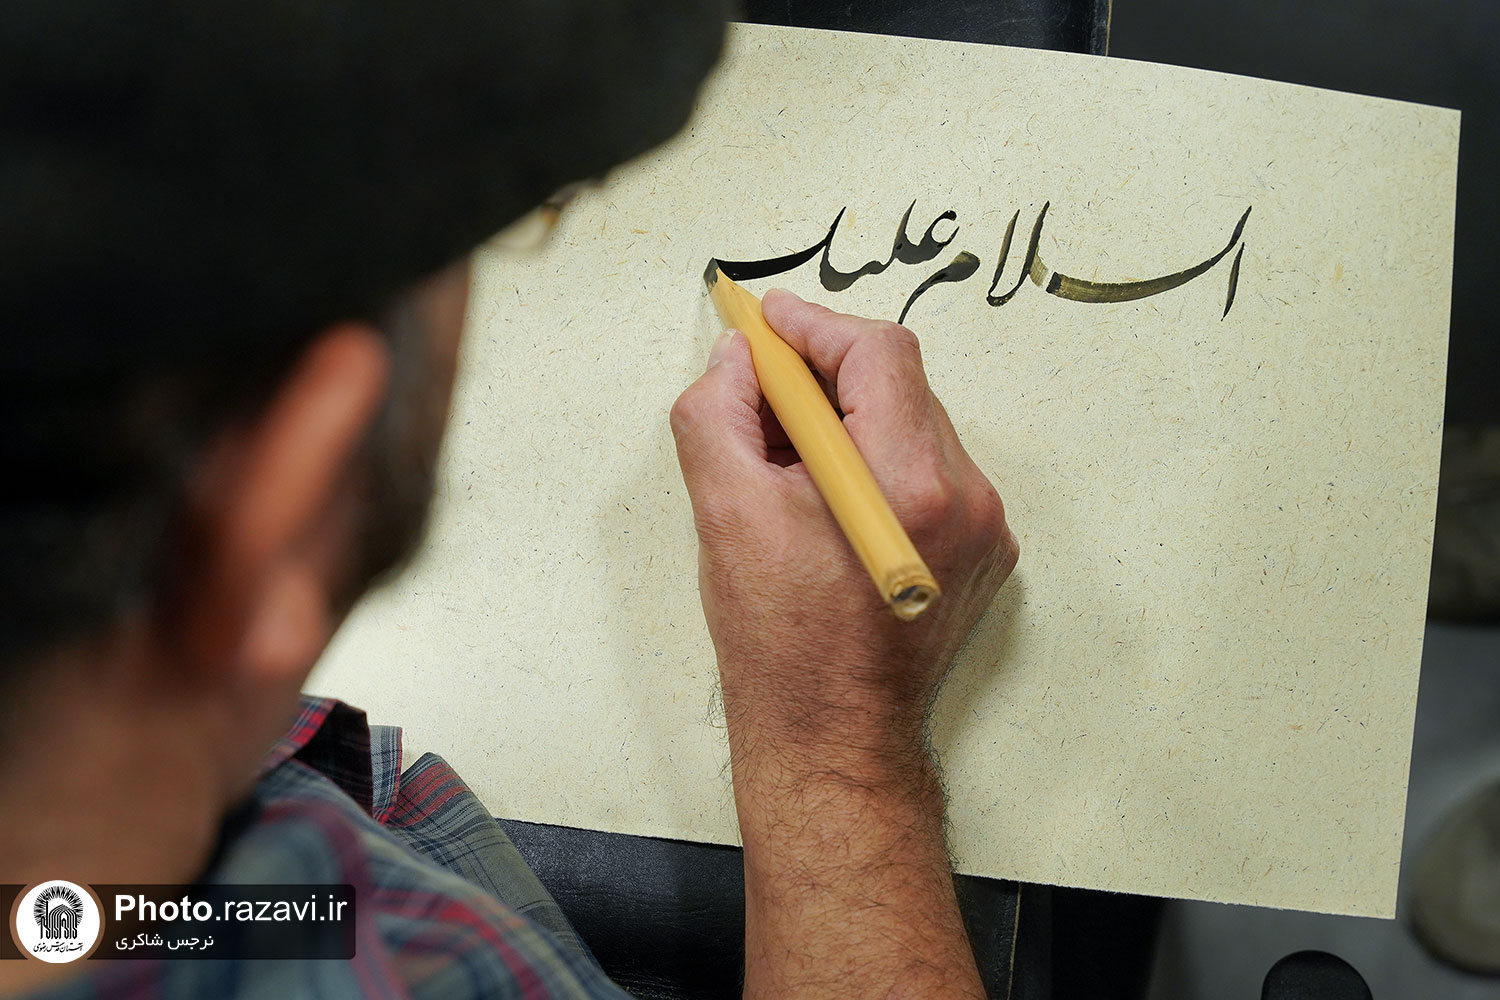 السلام علیک
Photo.razavi.ir
نرجس شاکری
آستان قدس رضوی